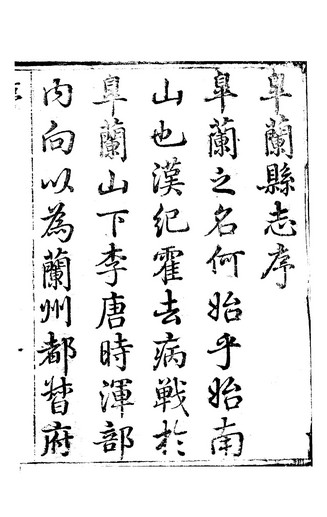 皐蘭縣志序
皐蘭之名何始乎始南
山也漢紀霍去病戰於
皐蘭山下李唐時渾部
内向以為蘭州都督府